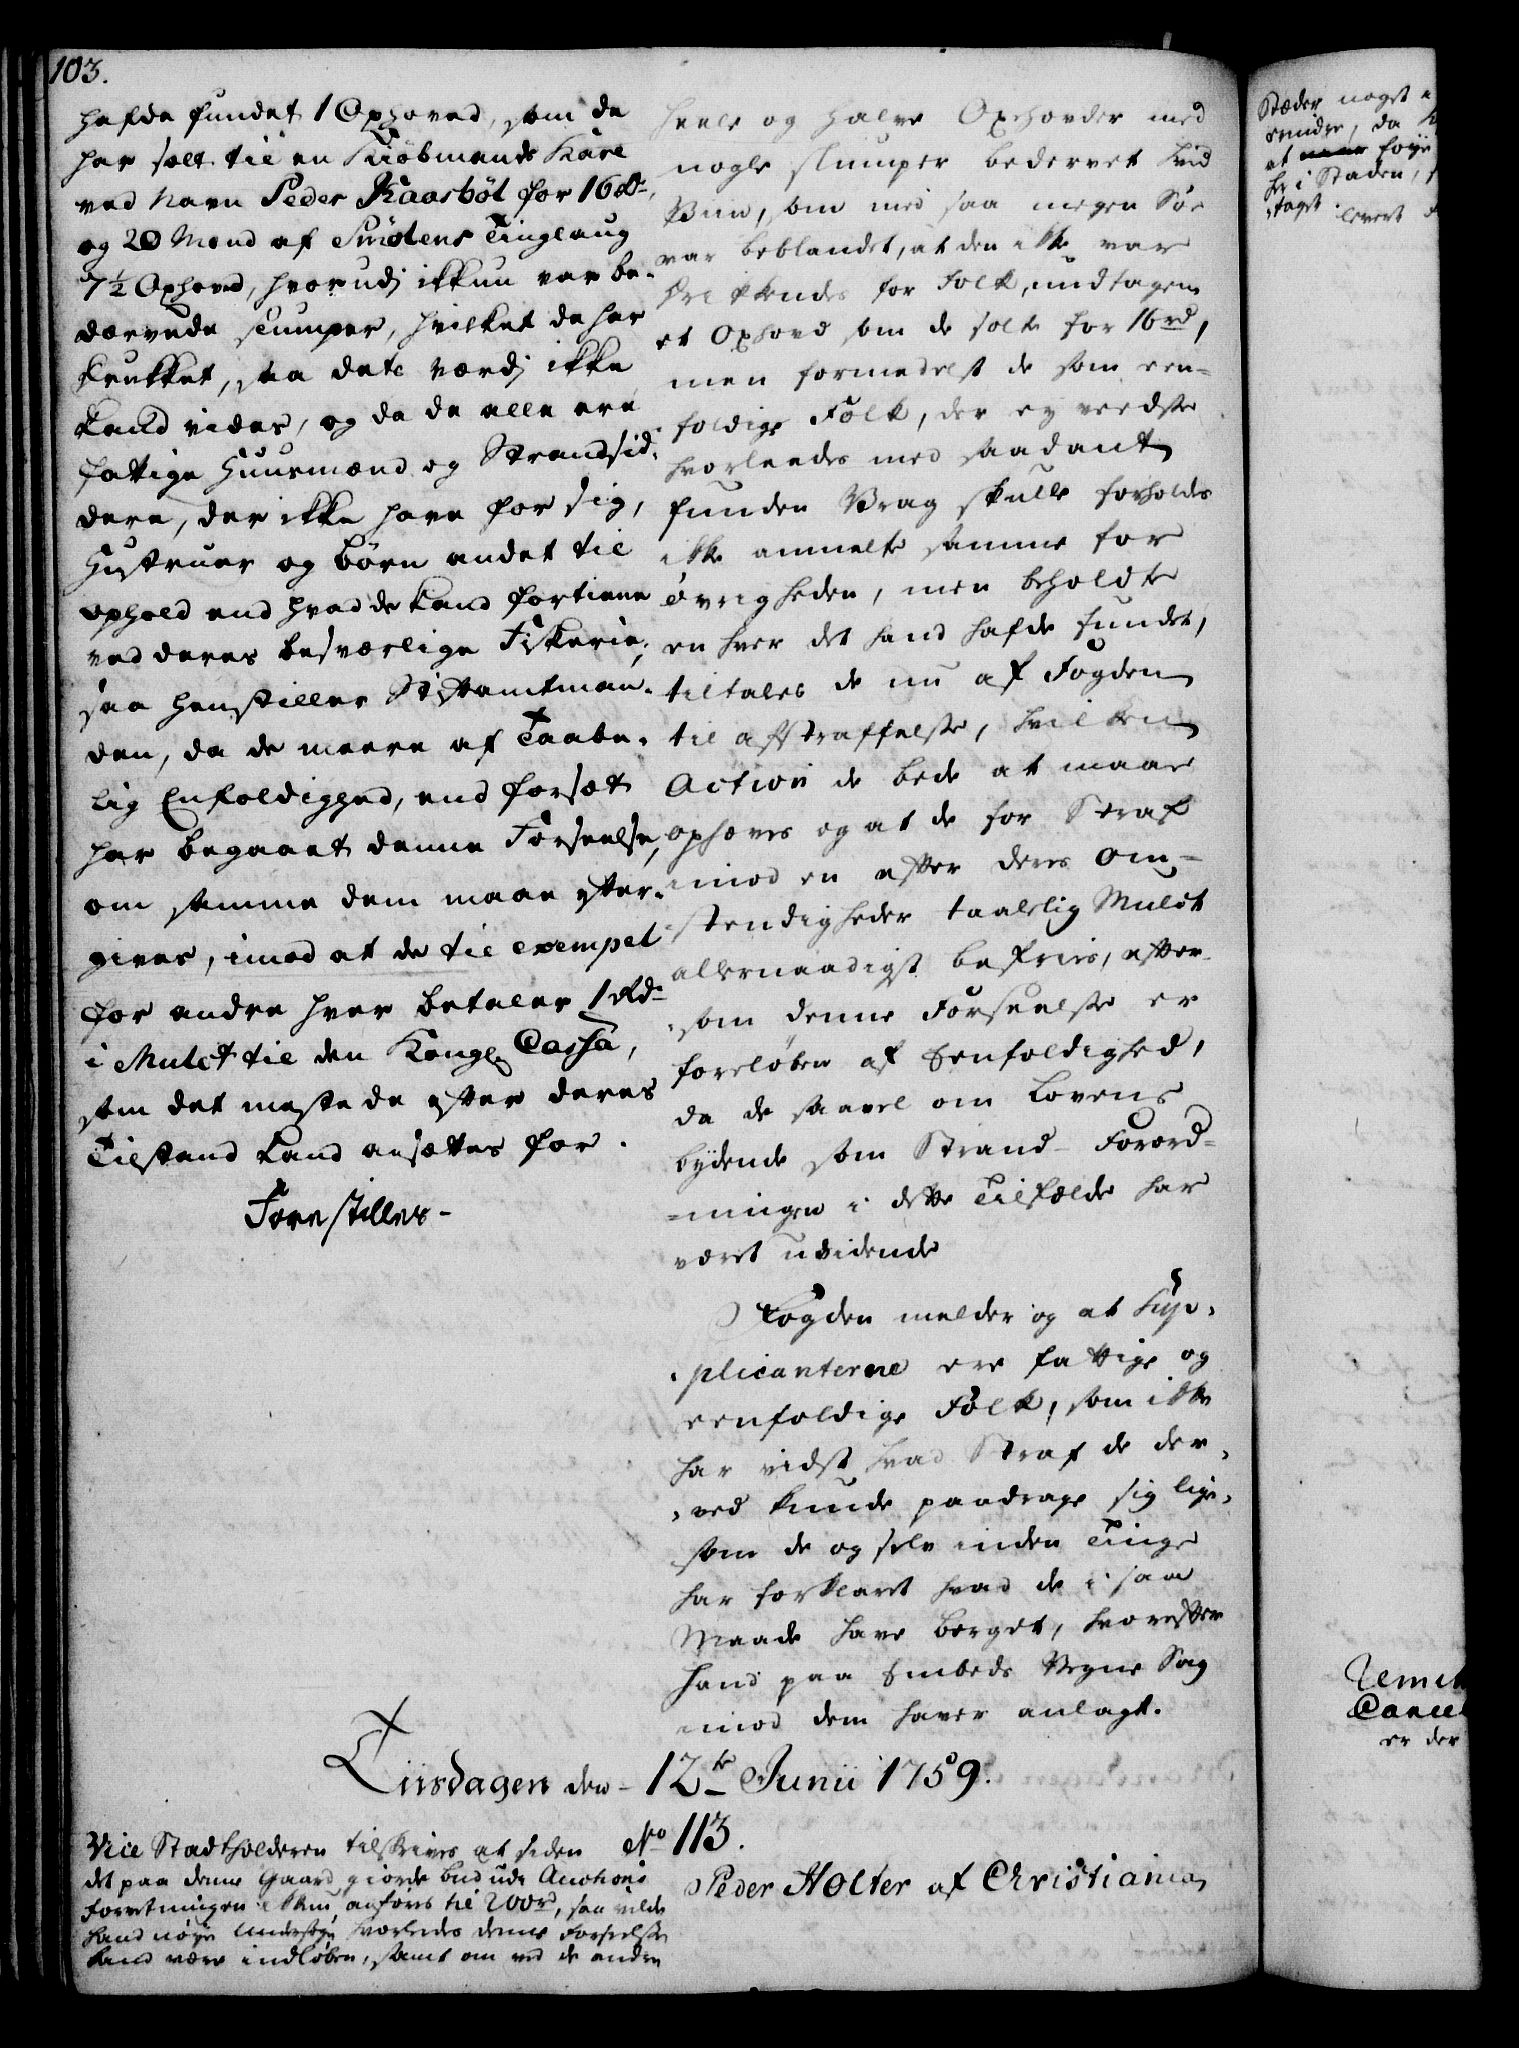 103.
hafde fundet 1 Oxhoved, som de
har solt til en Kiöbmands Karl
ved Navn Peder Kaasböl for 16 rd.
og 20 Mænd af Smölens Tinglaug
7½ Oxhoved, hvorudj ikkun var be-
dærvede slumper, hvilket de har
drukket, saa dets værdj ikke
kand vides, og da de alle ere
fattige Huusmænd og Strandsid-
dere, der ikke have for sig,
Hustruer og börn andet til
ophold end hvad de kand fortiene
ved deres besværlige Fiskerie,
saa henstiller Stiftamtman-
den, da de meere af Taabe-
lig Enfoldighed, end forsæt
har begaaet denne Forseelse,
om samme dem maae efter-
gives, imod at de til exempel
for andre hver betaler 1 Rd.
i Mulct til den Kongl. Cassa,
som det meste de efter deres
Tilstand kand ansættes for.
Forestilles-
heele og halve Oxehovder med
nogle slumper bedervet hvid
Viin, som med saa megen Söe
var beblandet, at den ikke var
drikkendes for Folk, undtagen
et Oxhovd som de solte for 16 rd,
men formedelst de som een-
foldige Folk, der ey veedste
hvorleedes med saadant
funden Vrag skulle forholdes
ikke anmelte samme for
Övrigheden, men beholdte
en hver det hand hafde fundet,
tiltales de nu af Fogden
til afstraffelse, hvilken
Action de bede at maae
ophæves og at de for Straf
imod en efter deres Om-
stendigheder taalelig Mulct
allernaadigst befries, efter-
som denne Forseelse er
foreløben af Eenfoldighed,
da de saavel om Lovens
bydende som Strand-Forord-
ningen i dette Tilfælde har
været uvidende
Fogden melder og at Sup-
plicanterne ere fattige og
eenfoldige Folk, som ikke
har vidst hvad Straf de der-
ved kunde paadrage sig lige-
som de og selv inden Tinge
har forklaret hvad de i saa
Maade have berget, hvorefter
hand paa Embeds Vegne Sag
imod dem haver anlagt.
Tiisdagen den 12te Junii 1759.
Vice Stadtholderen tilskrives at siden
det paa denne Gaard giorde bud udi Auctions
Forretningen ikkun anføres til 200 rd, saa vilde
hand nöye undersøge hvorledes denne Forseelse
kand være indløben, samt om ved de andre
No 113.
Peder Holter af Christiania
Stæder noget
da
at foye
her i Staden,
Cancel
er der